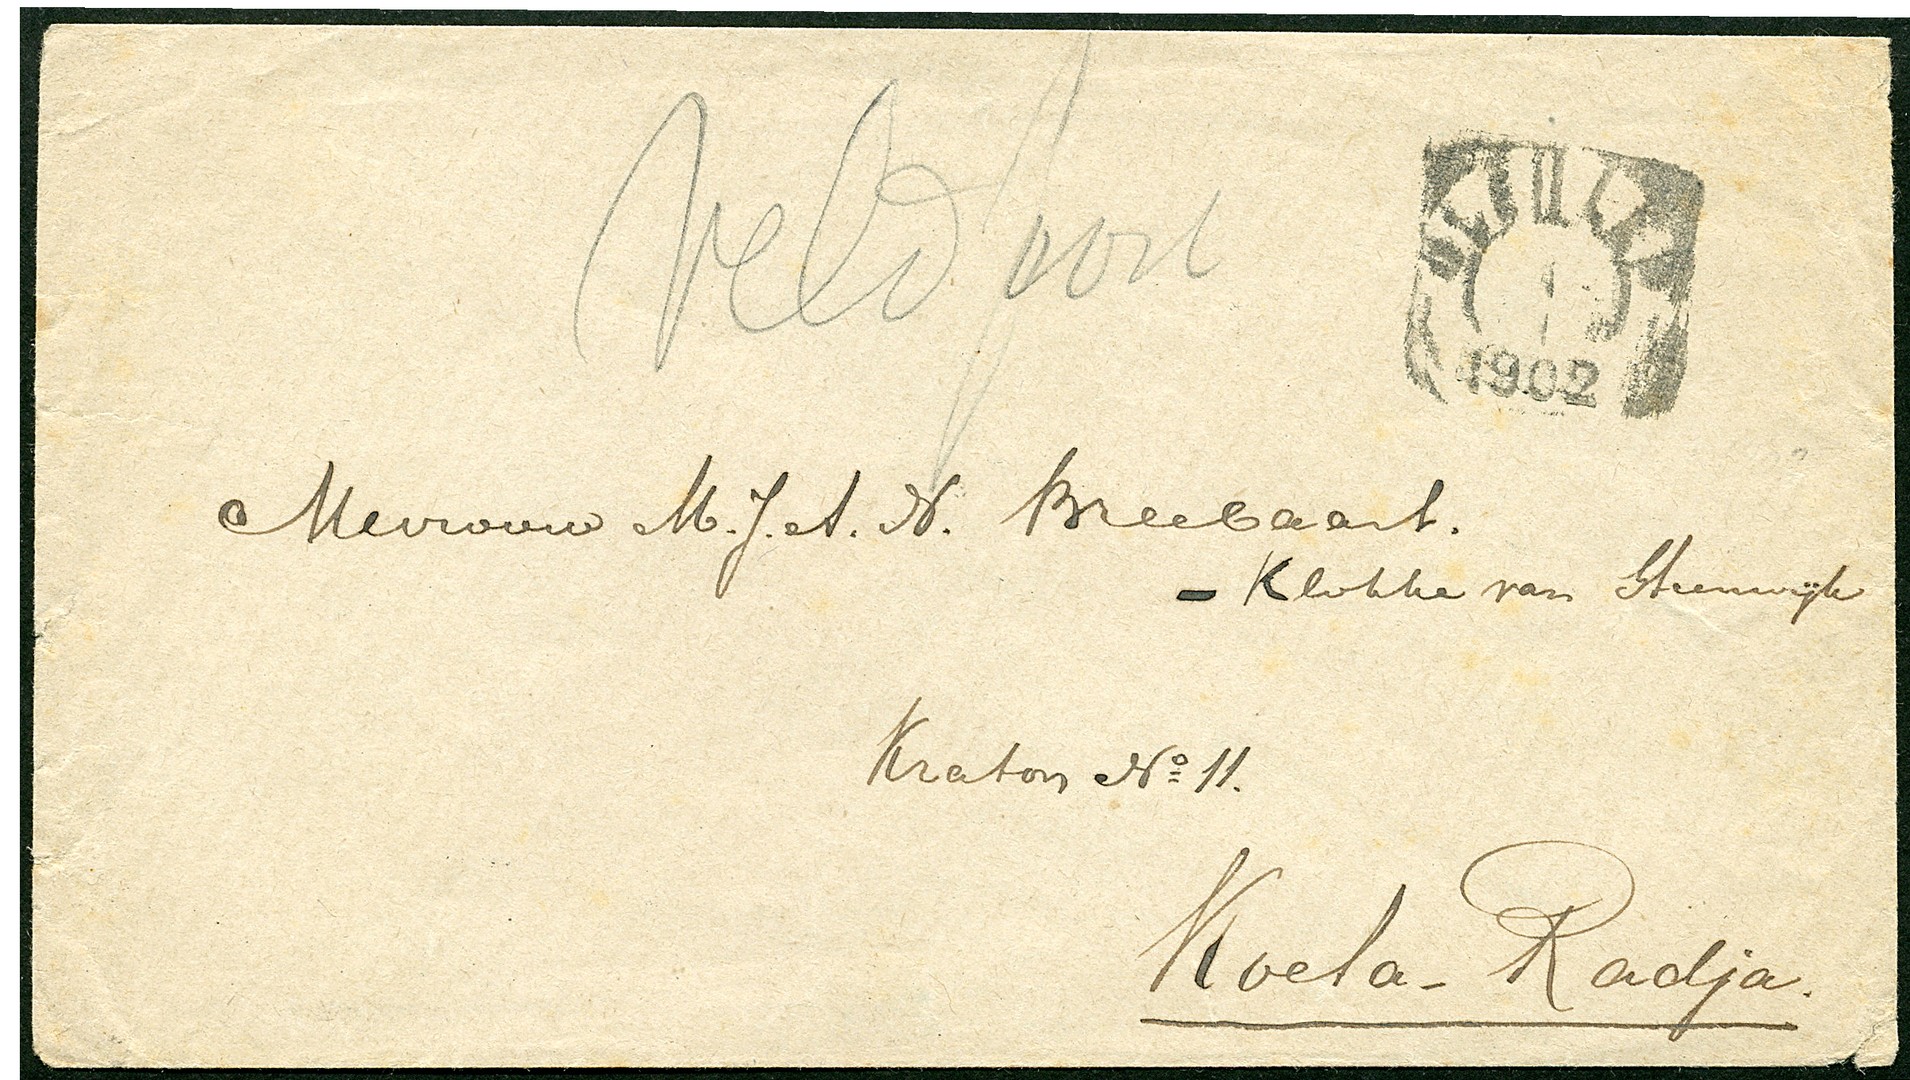 Veldpost
1902
Mevrouw M. J. A. N. Breebaart.
- Klokke van Steenwijk
Kraton No 11.
Koeta-Radja.